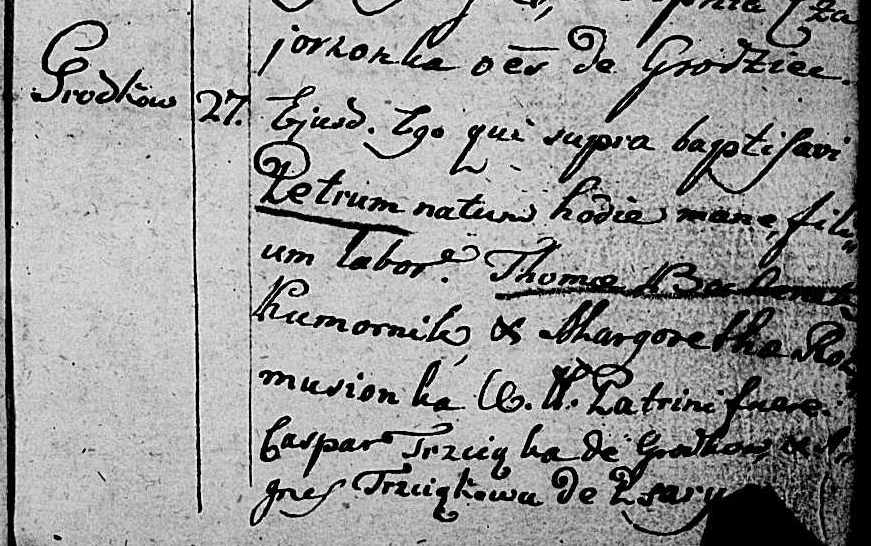 jorzonka oēs de Grodziec.
Grodków 27. Ejusd. Ego qui supra baptisavi
Petrum natum hodie mane, fili
um labor. Thomæ
Kumornik, & Margaretha
musionka C. L. Patrini fuere.
Caspar Trzciąka de Grodkow & A
gnes Trzciąkowa de Psary